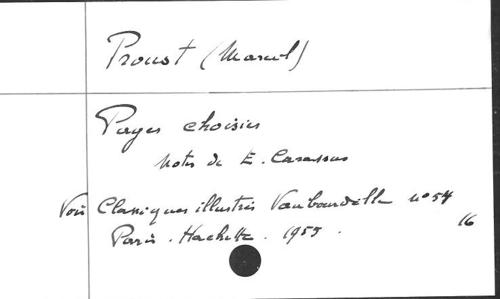 Proust (Marcel)
Pages choisies
Notes de E. Carassus
Voir Classiques illustrés Vaubourdolle n° 54
Paris. Hachette. 1955.
16